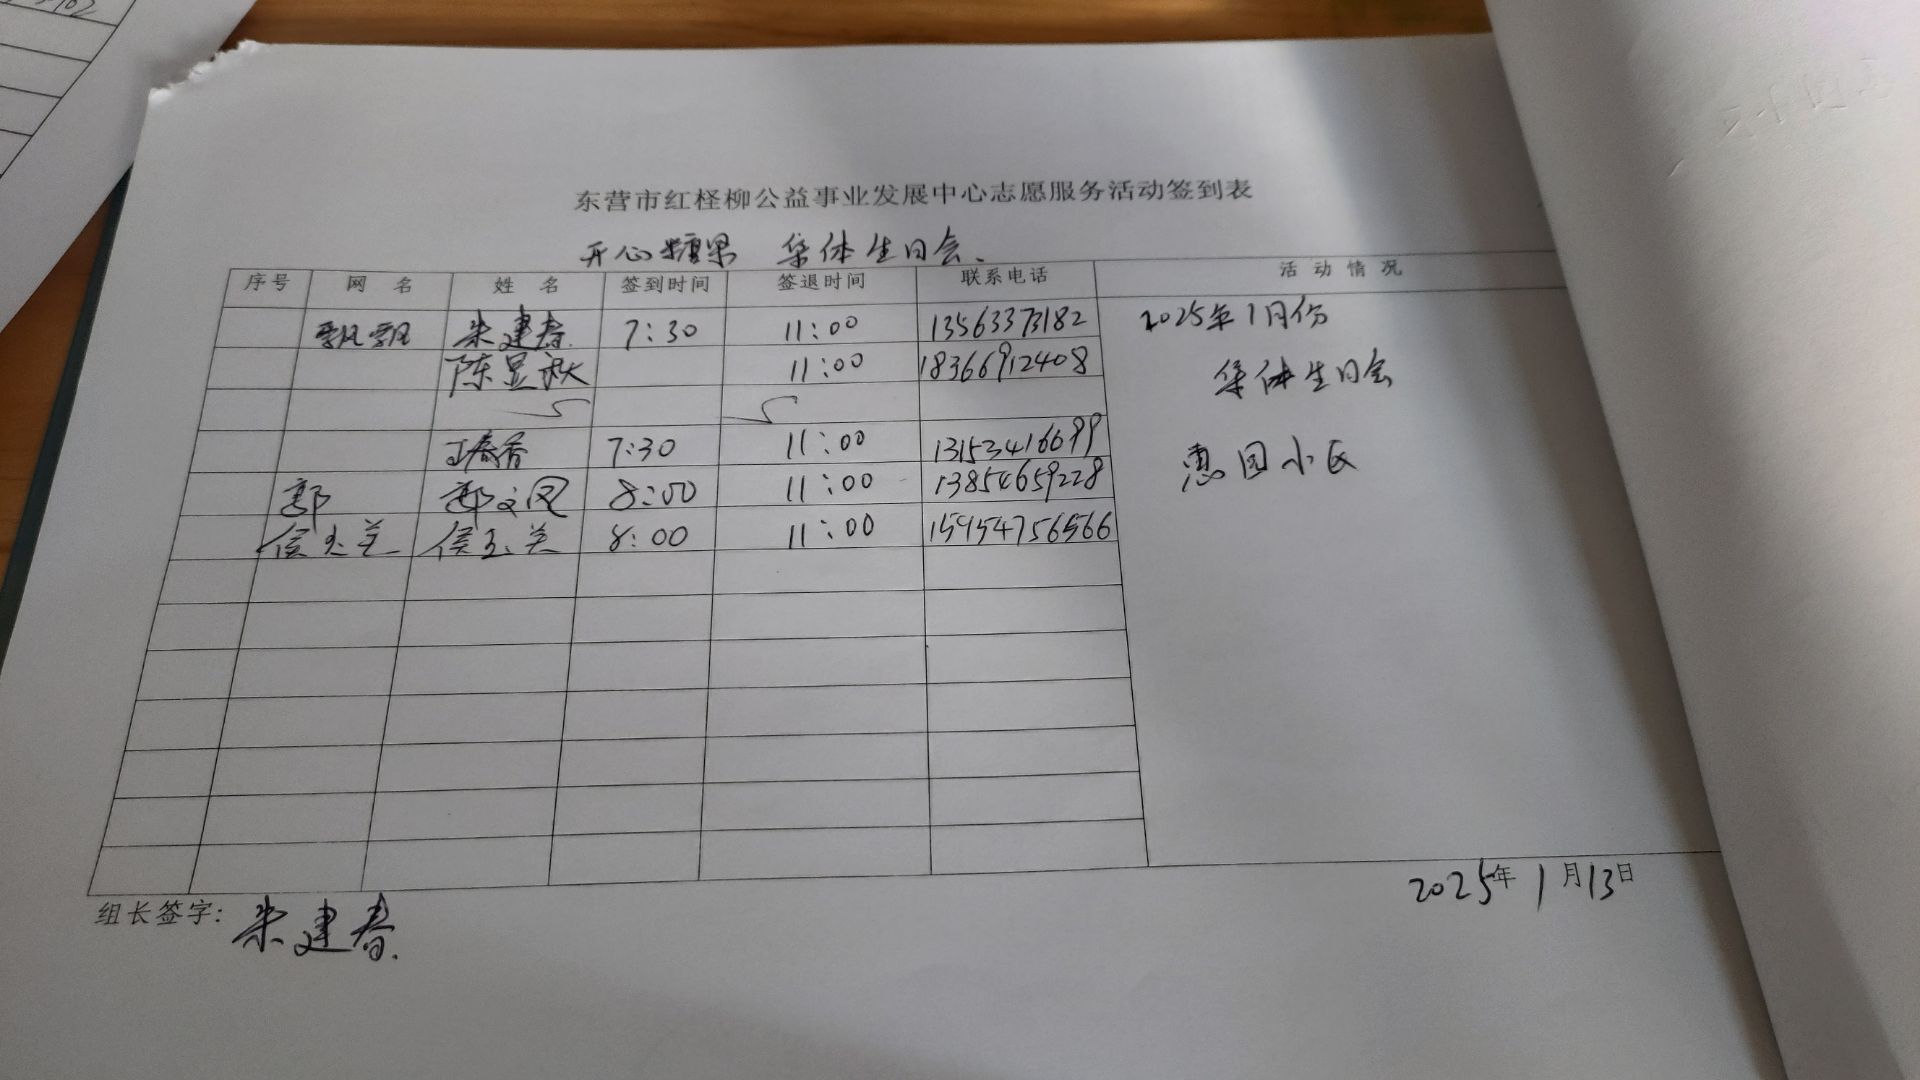 东营市红柽柳公益事业发展中心志愿服务活动签到表
开心糖果 集体生日会.
序号 网 名 姓 名 签到时间 签退时间 联系电话 活 动 情 况
飘飘 朱建春 7:30 11:00 13563373182 2025年1月份
陈昱秋 11:00 18366912408 集体生日会
7:30 11:00 13153416699 惠园小区
郭 郭文凤 8:00 11:00 13854659228
侯玉兰 侯玉兰 8:00 11:00 15954756566
2025年1月13日
组长签字: 朱建春.